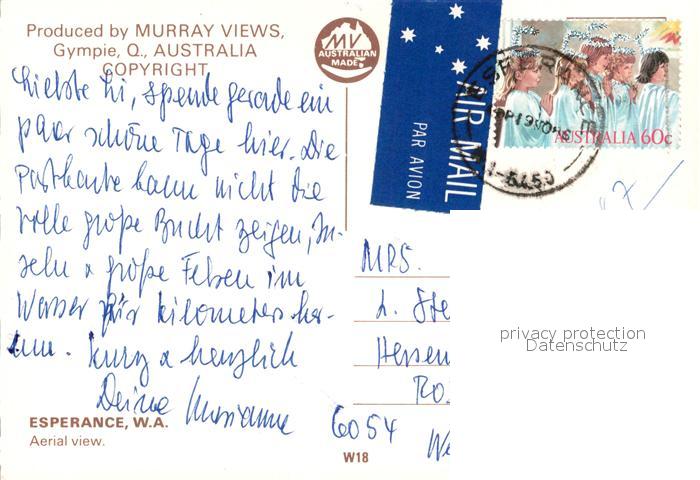 Produced by MURRAY VIEWS,
Gympie, Q., AUSTRALIA
COPYRIGHT
MV
AUSTRALIAN
MADE
AIR MAIL
PAR AVION
ESPERANCE
AUSTRALIA 60c
Liebste Li, spende gerade ein
paar schöne Tage hier. Die
Postkarte kann nicht die
volle große Bucht zeigen, In-
seln & große Felsen im
Wasser für kilometer her-
um. Kurz & herzlich
Deine Marianne
MRS.
L. Ste
Hessen
Ro
6054
privacy protection
Datenschutz
ESPERANCE, W.A.
Aerial view.
W18